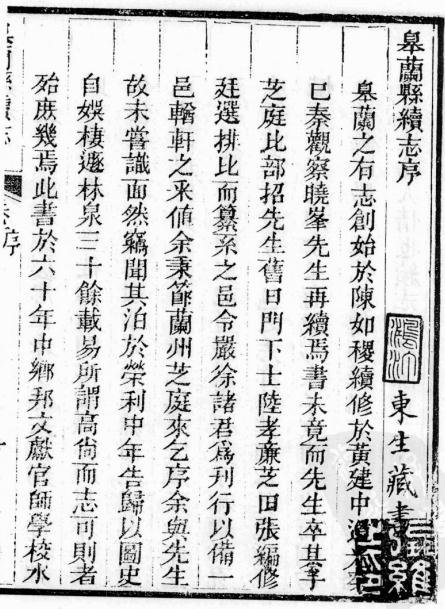 皋蘭縣續志序
東生藏書
皋蘭之有志創始於陳如稷續修於黃建中
巳秦觀察曉峯先生再續焉書未竟而先生卒其子
芝庭比部招先生舊日門下士陸孝亷芝田張編修
廷選排比而纂系之邑令嚴徐諸君爲刊行以備一
邑輶軒之采值余秉節蘭州芝庭來乞序余與先生
故未嘗識面然竊聞其泊於榮利中年告歸以圖史
自娛棲遯林泉三十餘載易所謂高尙而志可則者
殆庶幾焉此書於六十年中鄉邦文獻官師學校水
序